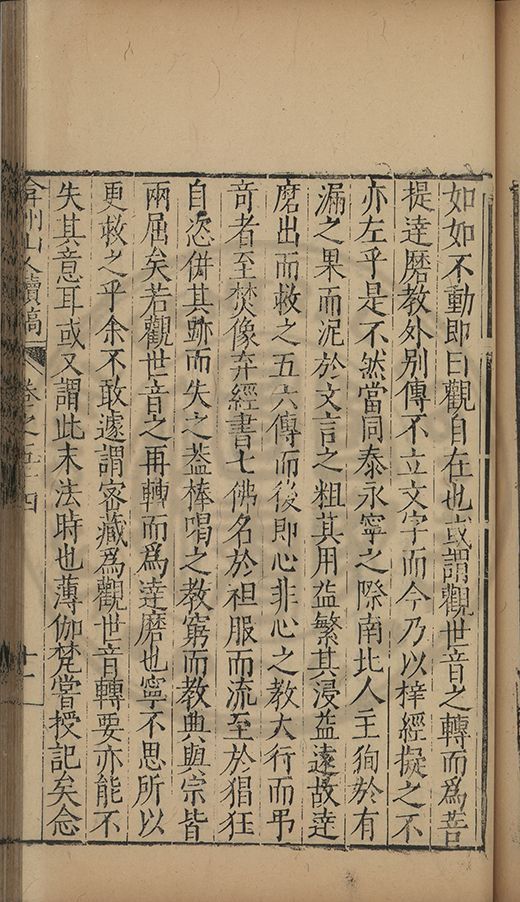 如如不動即曰觀自在也或謂觀世音之轉而爲菩
提達磨教外别傳不立文字而今乃以梓經擬之不
亦左乎是不然當同泰永寧之際南北人主狥於有
漏之果而泥於文言之粗其用益繁其浸益遠故達
磨出而救之五六傳而後即心非心之教大行而弔
竒者至焚像弃經書七佛名於袒服而流至於猖狂
自恣倂其跡而失之葢棒喝之教窮而教典與宗皆
兩屈矣若觀世音之再轉而爲達磨也寧不思所以
更救之乎余不敢遽謂密藏爲觀世音轉要亦能不
失其意耳或又謂此末法時也薄伽梵嘗授記矣念
弇州山人續稿 卷之五十四 十一